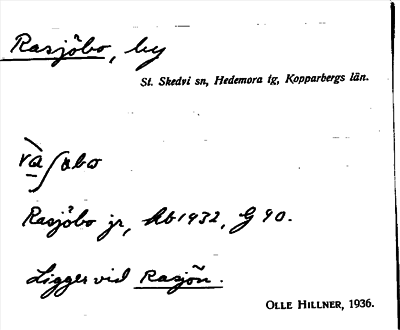 Rasjöbo, by
St. Skedvi sn, Hedemora tg, Kopparbergs län.
Rasjöbo jr, Ab 1932, G 90.
Ligger vid Rasjön.
OLLE HILLNER, 1936.